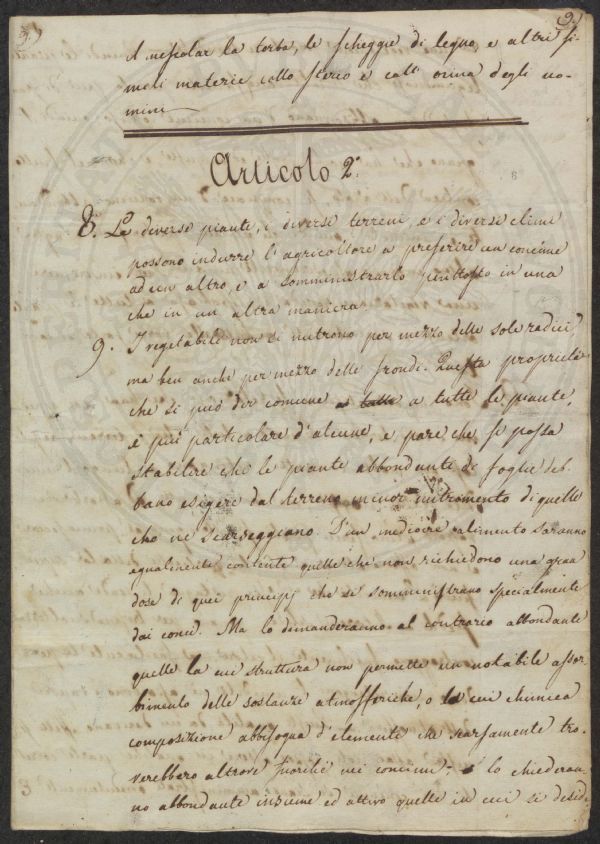 9.
A mescolar la torba, le scheggie di legno, e altri si-
mili materie collo sterco e coll' orina degli uo-
mini
Articolo 2.°
8. Le diverse piante, i diversi terreni, e i diversi climi
possono indurre l'agricoltore a preferire un concime
ad un altro, e a somministrarlo piuttosto in una
che in un altra maniera.
9. I vegetabili non si nutrono per mezzo delle sole radici,
ma ben anche per mezzo delle frondi. Questa proprietà
che si può dir comune a tutte le piante,
è più particolare d'alcune, e pare che si possa
stabilire che le piante abbondanti di foglie deb-
bano esigere dal terreno minor nutrimento di quelle
che ne scarseggiano. D'un mediocre alimento saranno
egualmente contente quelle che non richiedono una gran
dose di quei principj che si somministrano specialmente
dai concj. Ma lo dimanderanno al contrario abbondante
quelle la cui struttura non permette un notabile assor-
bimento delle sostanze atmosferiche, o la cui chimica
composizione abbisogna d'elementi che scarsamente tro-
verebbero altrove fuorchè nei concimi; lo chiederan-
no abbondante insieme ed attivo quelle in cui si desid-